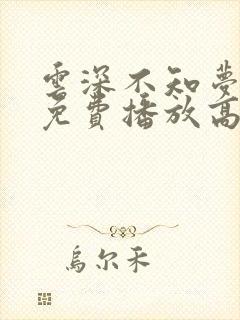 雲深不知夢
免費播放高
烏尔禾